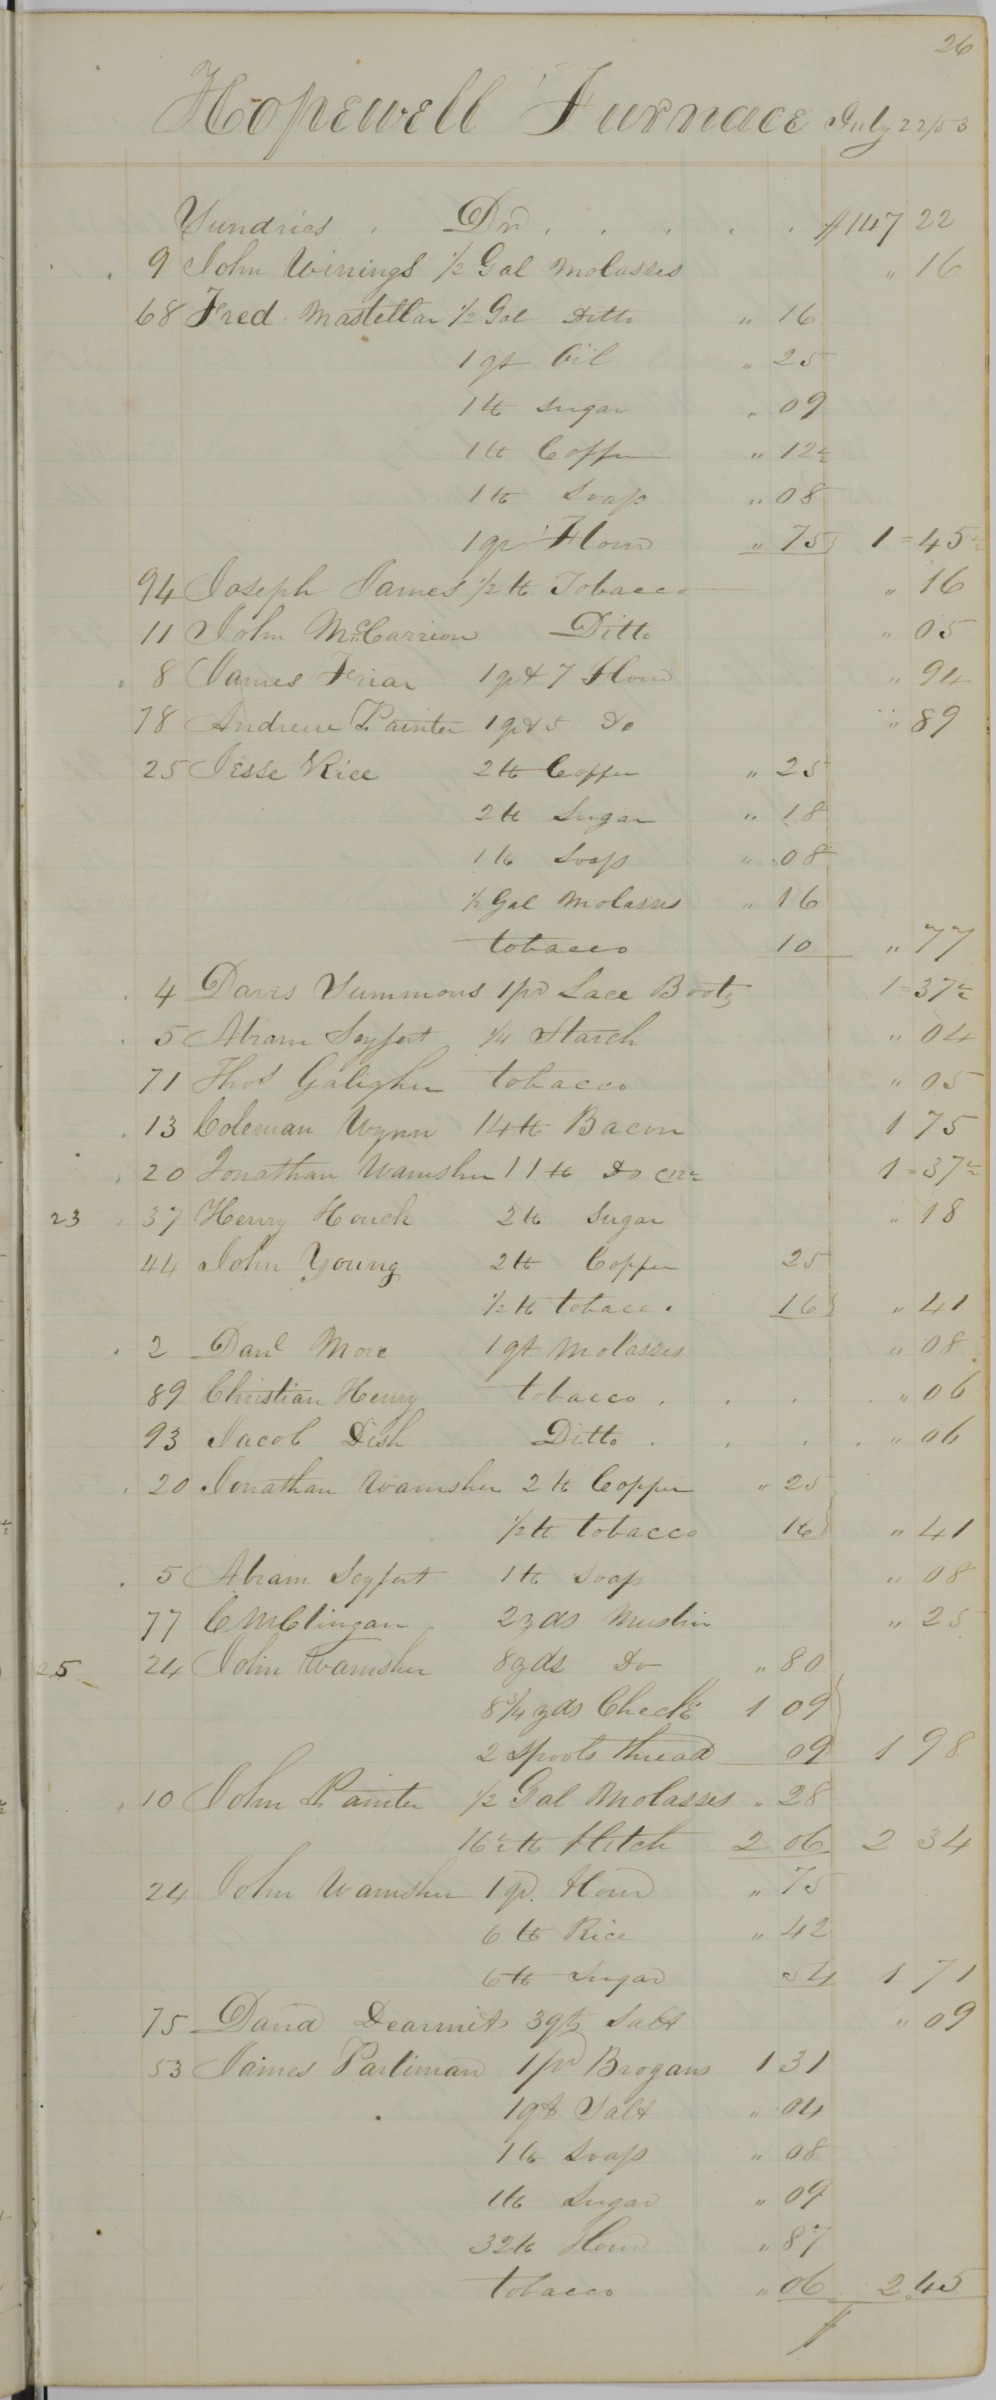 26
Hopewell Furnace July 22/53
Sundries . Dr . . . . . $ 147 22
9 John Winings ½ Gal Molasses " 16
68 Fred. Mastellar ½ Gal Ditto " 16
1 qt Oil " 25
1 lb Sugar " 09
1 lb Coffee " 12½
1 lb Soap " 08
1 qr Flour " 75 1 = 45½
94 Joseph James ½ lb Tobacco " 16
11 John McCarreon Ditto " 05
8 James Friar 1 qr & 7 Flour " 94
78 Andrew Painter 1 qr & 5 Do " 89
25 Jesse Rice 2 lb Coffee " 25
2 lb Sugar " 18
1 lb Soap " 08
½ Gal Molasses " 16
tobacco 10 " 77
4 Davis Summons 1 pr Lace Boots 1 = 37½
5 Abram Seyfert ¼ Starch " 04
71 Thos Galigher tobacco " 05
13 Coleman Wynn 14 lb Bacon 1 75
20 Jonathan Wamsher 11 lb Do @ 12½ 1 = 37½
23 37 Henry Houck 2 lb Sugar " 18
44 John Young 2 lb Coffee 25
½ lb tobacco 16 " 41
2 Danl More 1 qt Molasses " 08
89 Christian Henry tobacco . . . . " 06
93 Jacob Dish Ditto . . . . " 06
20 Jonathan Wamsher 2 lb Coffee " 25
½ lb tobacco 16 " 41
5 Abram Seyfert 1 lb Soap " 08
77 C McClingan 2 yds Muslin " 25
25 24 John Wamsher 8 yds Do " 80
8¾ yds Check 1 09
2 Spools thread 09 1 98
10 John Painter ½ Gal Molasses " 28
16½ lb Flitch 2 06 2 34
24 John Wamsher 1 qr. Flour " 75
6 lb Rice " 42
6 lb Sugar 54 1 71
75 David Dearmit 3 qts Salt " 09
53 James Partiman 1 pr Brogans 1 31
1 qt Salt " 04
1 lb Soap " 08
1 lb Sugar " 09
32 lb Flour " 87
tobacco " 06 2 45